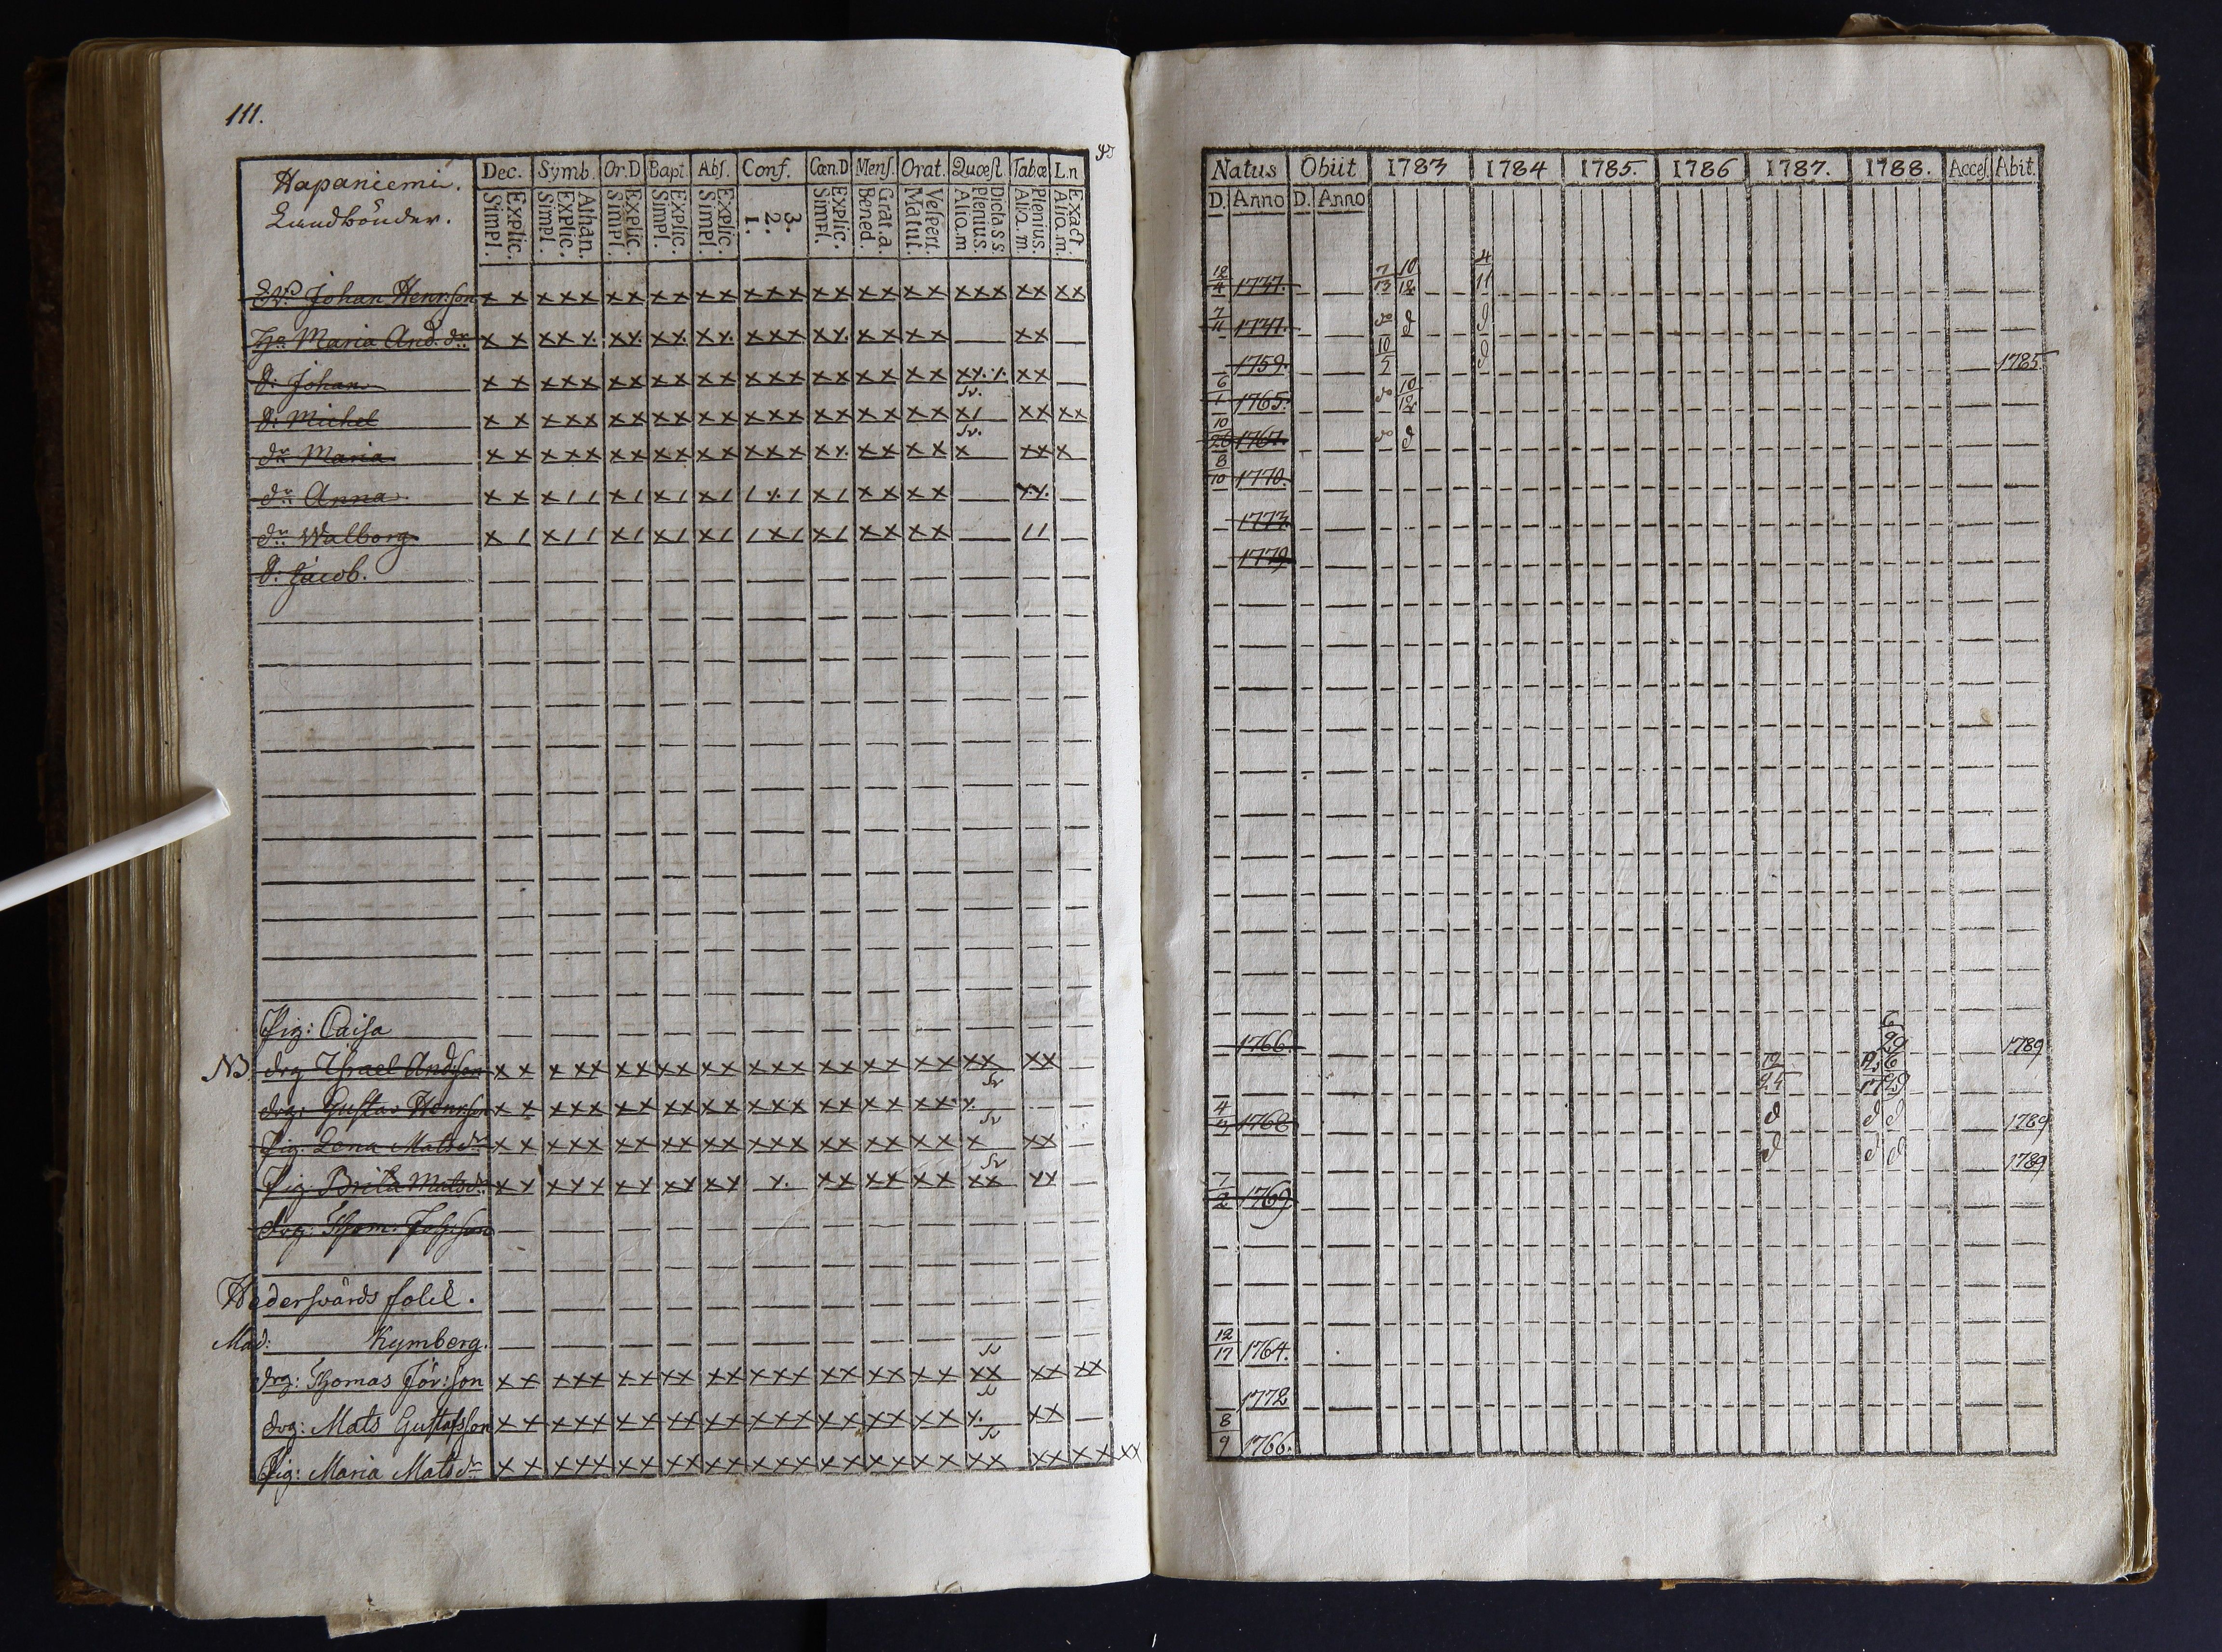 111.
Hapaniemi.
Landbönder.
Dec. Symb. Or.D Bapt. Abſ. Conf. Cœn.D Menſ. Orat. Quœſt. Tabœ L.n
Simpl. Explic. Simpl. Explic. Athan. Simpl. Explic. Simpl. Explic. Simpl. Explic. 1. 2. 3. Simpl. Explic. Bened. Grat.a. Matut. Veſpert. Aliq.m Plenius. Dicta s s Aliq.m Plenius. Aliq.m. Exact.
Natus Obiit 1783 1784 1785. 1786 1787. 1788. Acceſ. Abit.
D. Anno D. Anno
Johan Henr:son x x x x x x x x x x x x x x x x x x x x x x x x x x x x 12/4 1737. 7/13 10/12 4/11
Hu Maria And.dr x x x x x x x x x x x x x x x x x x x x x x x 7/11 1737. do d d
S: Johan x x x x x x x x x x x x x x x x x x x x x x x x x x 1759. 10/5 d 1785
S: Michel x x x x x x x x x x x x x x x x x x x x x x / x x x x 6/1 1765. do 10/12
dr Maria x x x x x x x x x x x x x x x x x x x x x x x x x 10/26 1767. do d
dr Anna x x x / / x / x / x / / x / x / x x x x x x 8/10 1770.
dr Walborg x / x / / x / x / x / / x / x / x x x x / / 1773.
S: Jacob. 1779.
Pig: Caisa 1766. 6/29 1789
NB. drg Israel And:son x x x x x x x x x x x x x x x x x x x x x x x x x 12/25 6/29
drg: Gustav Henr:son x x x x x x x x x x x x x x x x x x x x x x 4/4 1768 d d d 1789
Pig. Lena Matsdr x x x x x x x x x x x x x x x x x x x x x x x x d d d 1789
Pig. Brita Matsdr x x x x x x x x x x x x x x x x x x x x x x x 7/2 1769
drg: Thom:
Hedersvärds folck.
Mad: Kymberg. 12/17 1764.
drg: Thomas Jör:son x x x x x x x x x x x x x x x x x x x x x x x x x x x
drg: Mats Gustafsson x x x x x x x x x x x x x x x x x x x x x x x x 1772
Pig: Maria Matsdr x x x x x x x x x x x x x x x x x x x x x x x x x x x x x 8/9 1766.